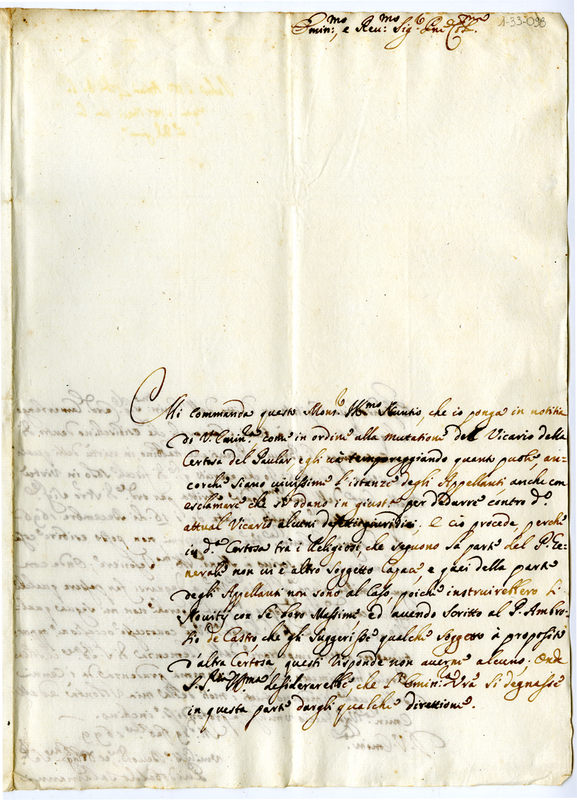 1-33-098
Emin:mo, e Reu:mo Sig.r
Mi commanda questo Mons.r Ill.mo Nuntio, che io ponga in notitia
di V. Emin.za come in ordine alla mutatione del Vicario della
Certosa del Paular egli và temporeggiando quanto puole an-
corche siano viuissime l'istanze degli Appellanti anche con
esclamare che s'odano in giust.a per dedurre contro d.o
attual Vicario alcuni . E ciò procede, perche
in d.a Certosa trà i Religiosi, che seguono la parte del P. Ge-
nerale non vi è altro Soggetto Capace e quei della parte
degli Appellanti non sono al Caso, poiche instruirebbero li
Nouitij con le loro Massime, ed auendo scritto al P. Ambro-
sio de Castro che gli suggerisse qualche Soggetto à proposito
d'altra Certosa, questi risponde non auerne alcuno; Onde
S. S. Ill.ma desiderarebbe, che l'Emin.za V.ra si degnasse
in questa parte dargli qualche direttione.